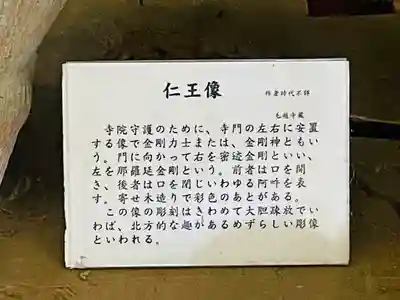 仁王像
作者時代不詳
毛越寺蔵
寺院守護のために、寺門の左右に安置
する像で金剛力士または、金剛神ともい
う。門に向かって右を密迹金剛といい、
左を那羅延金剛という。前者は口を開
き、後者は口を閉じいわゆる阿吽を表
す。寄せ木造りで彩色のあとがある。
この像の彫刻はきわめて大胆疎放でい
わば、北方的な趣があるめずらしい彫像
といわれる。